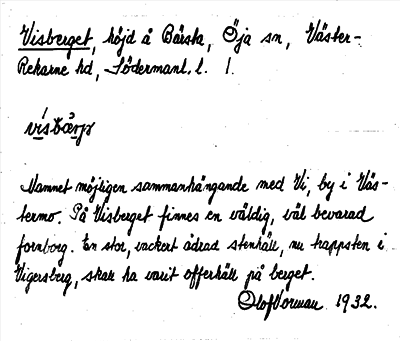 Visberget, höjd å Bärsta, Öja sn, Väster-
Rekarne hd, Södermanl. l. 1.
Namnet möjligen sammanhängande med Vi, by i Väs-
termo. På Visberget finnes en väldig, väl bevarad
fornborg. En stor, vackert ådrad stenhäll, nu trappsten i
Vigersberg, skall ha varit offerhäll på berget.
Olof Vorman 1932.